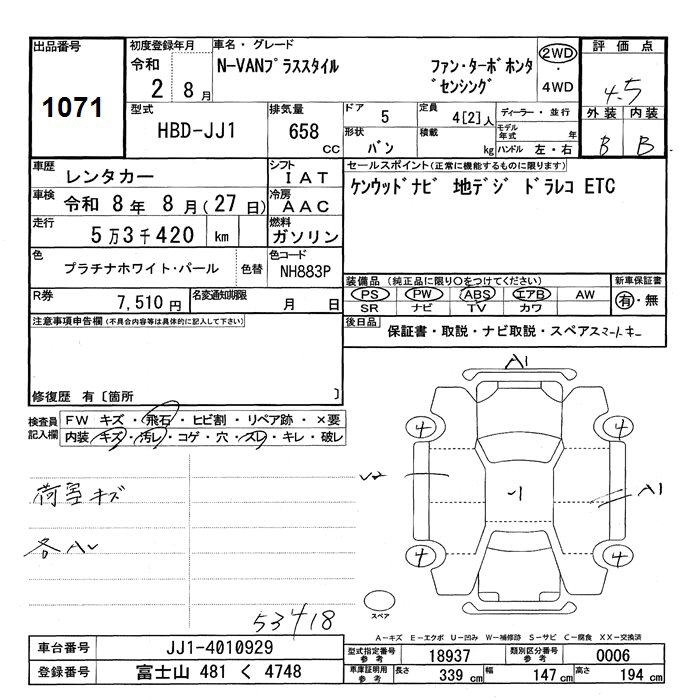 出品番号
1071
初度登録年月
令和
2 8月
車名・グレード
N-VANプラススタイル ファン・ターボホンタ
゛センシング
2WD
・
4WD
評価点
4.5
外装 内装
B B
型式
HBD-JJ1
排気量
658 cc
ドア 5
形状 バン
定員 4[2]人
積載 kg
ディーラー・並行
モデル年式 年
ハンドル 左・右
車歴 レンタカー
シフト IAT
車検 令和 8年 8月(27日)
冷房 AAC
走行 5万3千420 km
燃料 ガソリン
色 プラチナホワイト・パール 色替
色コード NH883P
R券 7,510円
名変通知期限 月 日
セールスポイント(正常に機能するものに限ります)
ケンウッドナビ 地デジ ドラレコ ETC
装備品(純正品に限り○をつけてください)
PS PW ABS エアB AW
SR ナビ TV カワ
新車保証書
有・無
後日品
保証書・取説・ナビ取説・スペアスマートキー
注意事項申告欄(不具合内容等は具体的に記入して下さい)
修復歴 有〔箇所 〕
検査員
記入欄
FW キズ・飛石・ヒビ割・リペア跡・×要
内装 キズ・汚レ・コゲ・穴・スレ・キレ・破レ
荷室キズ
各A
53418
A1
4 4
A1
4 4
スペア
A-キズ E-エクボ U-凹み W-補修跡 S-サビ C-腐食 XX-交換済
車台番号 JJ1-4010929
登録番号 富士山 481 く 4748
型式指定番号
参考
18937
類別区分番号
参考
0006
車庫証明用
参考
長さ 339 cm 幅 147 cm 高さ 194 cm